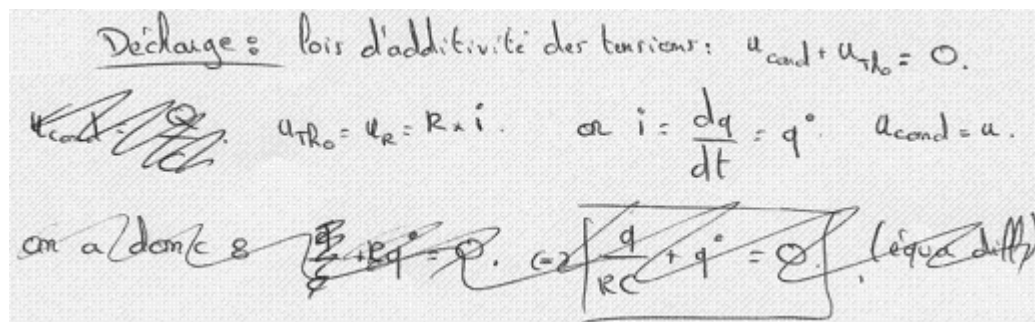 Décharge : lois d'additivité des tensions : u_cond + u_Rho = 0.
u_cond = Q/C. u_Rho = u_R = R × i. or i = dq/dt = q°. u_cond = u.
on a donc : q/C + Rq° = 0. <=> q/RC + q° = 0. (équa diff)